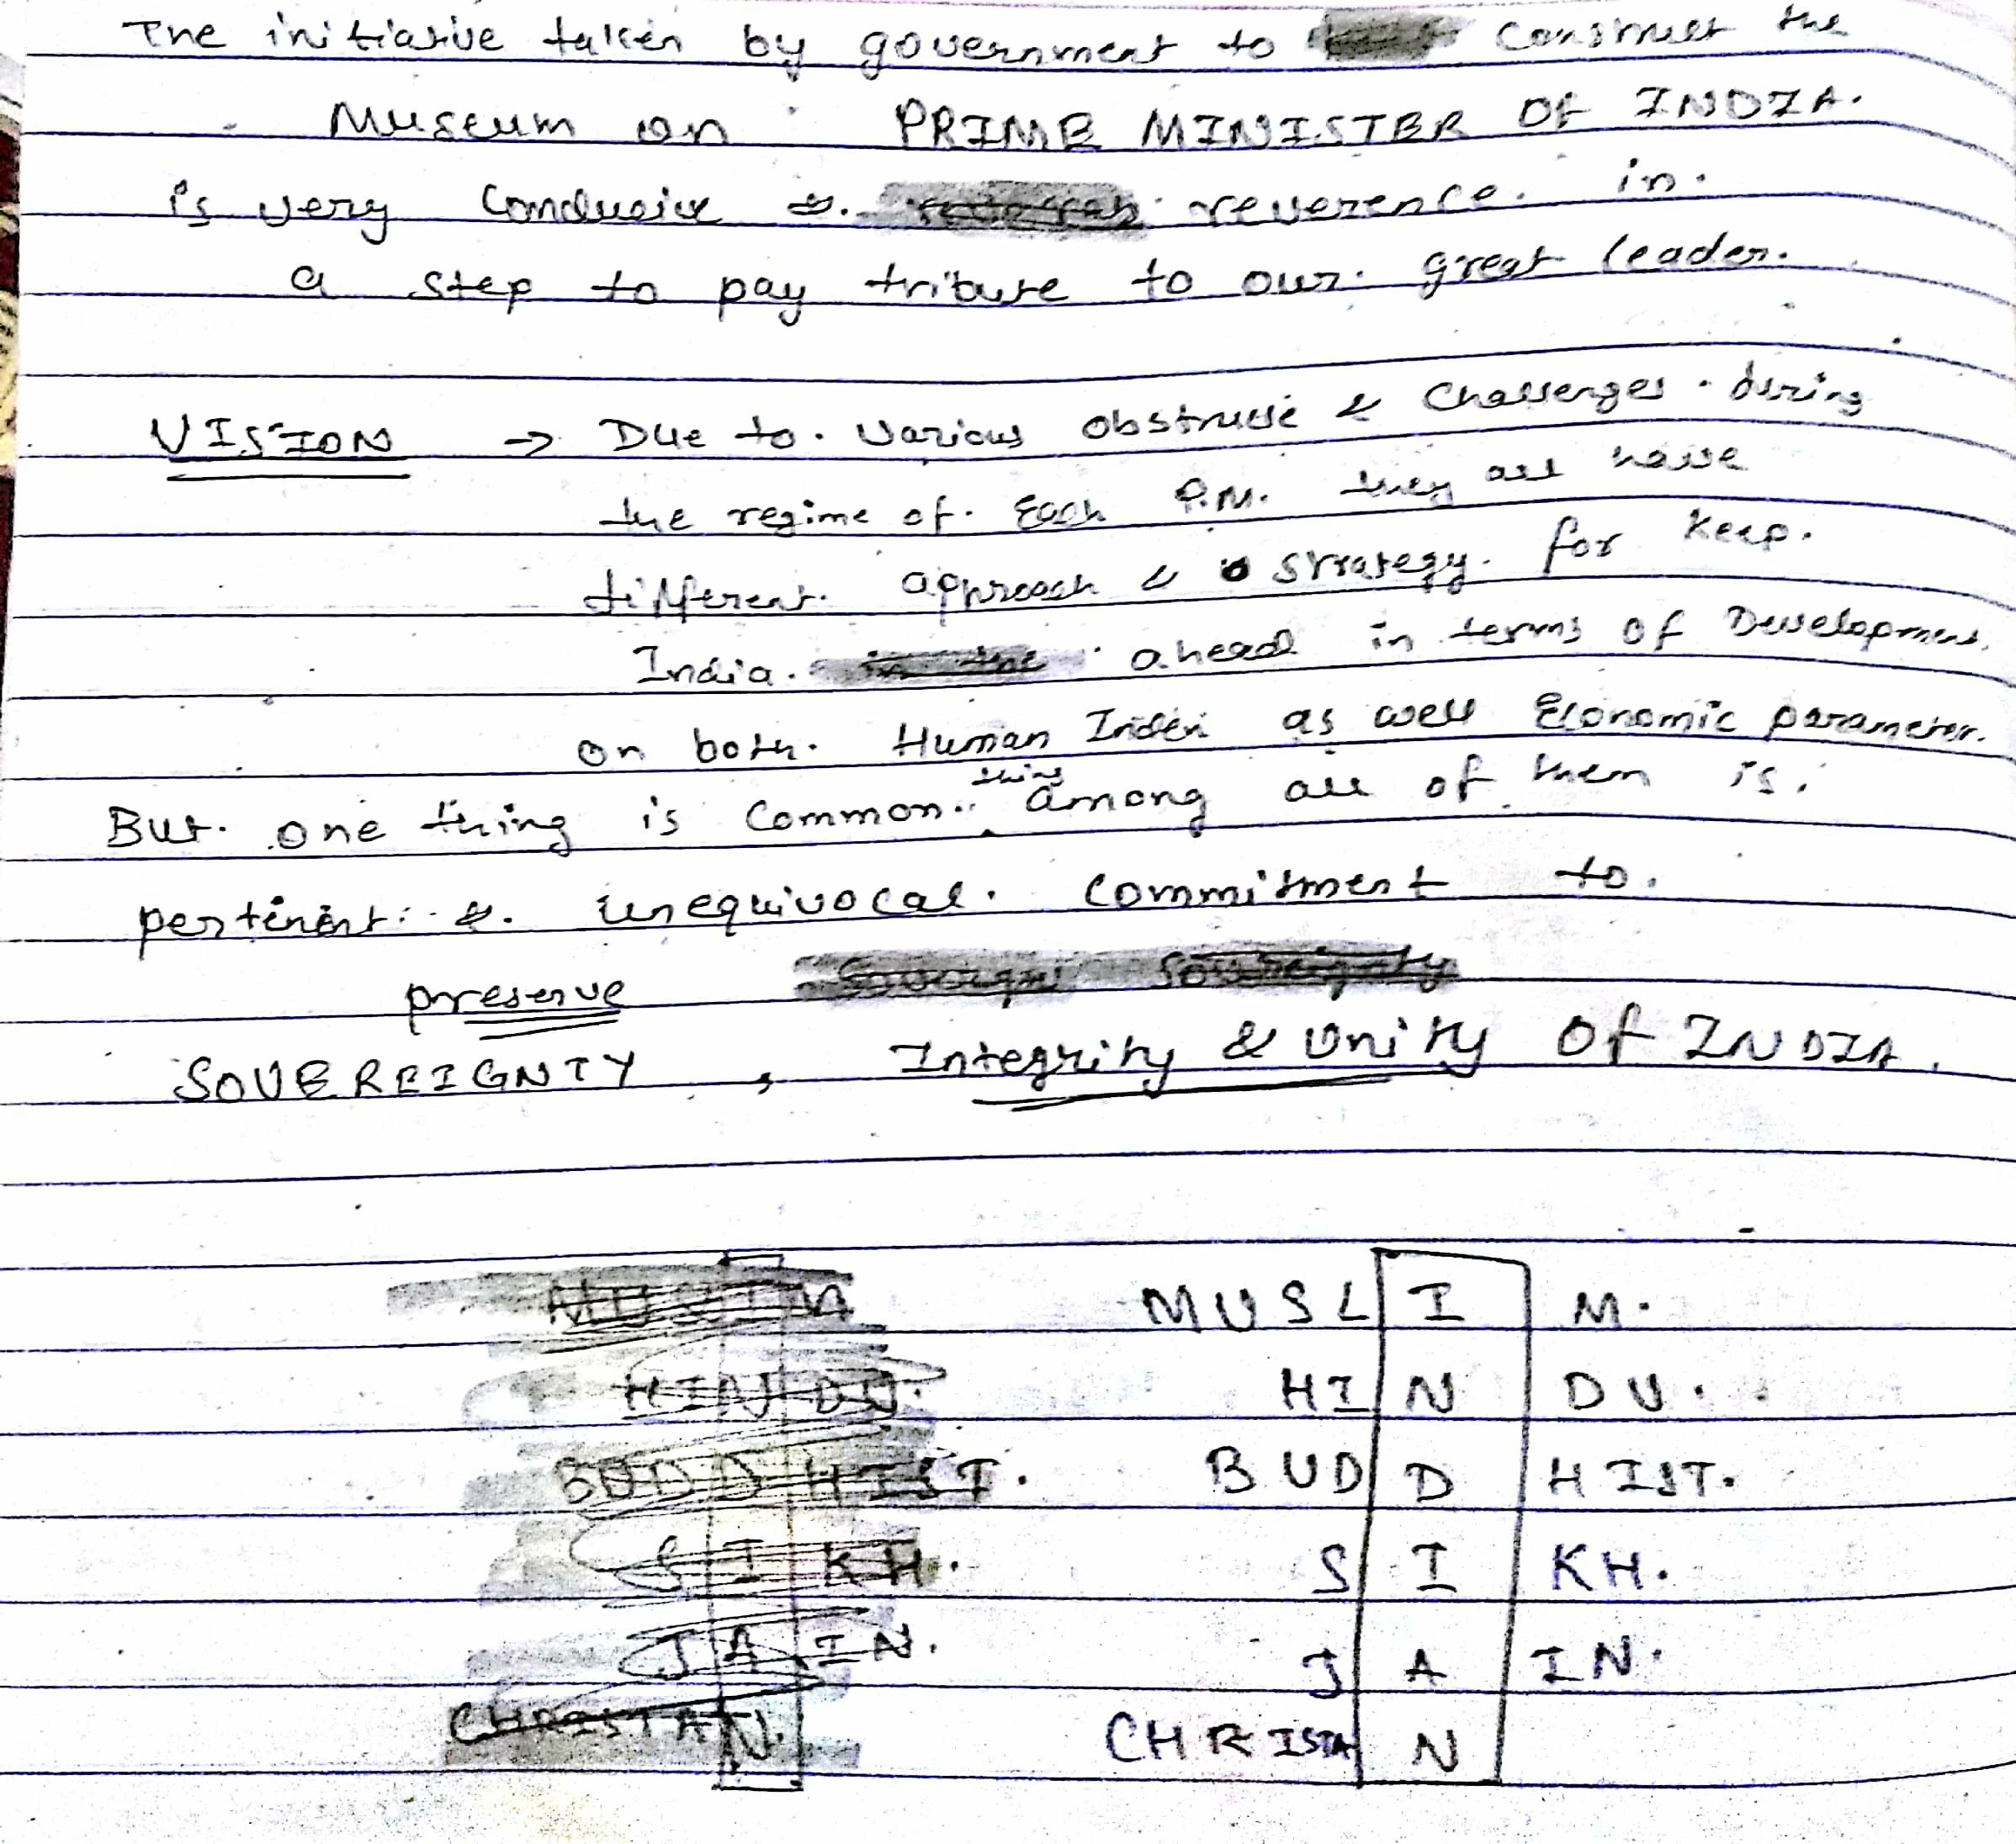 The initiative taken by government to construct the
Museum on PRIME MINISTER OF INDIA.
is very Conducive &. reverence. in.
a step to pay tribute to our. great leader.
VISION → Due to. various obstrucle & Challenges. during
the regime of. Each P.M. they all have
different. approach & strategy. for keep.
India. ahead in terms of Development.
on both. Human Index as well Economic parameter.
But. one thing is Common. thing among all of them is.
pertinent. &. unequivocal. commitment to.
preserve
SOVEREIGNTY, Integrity & Unity Of INDIA.
MUSL I M.
HI N DU.
BUD D HIST.
S I KH.
J A IN.
CHRISTA N